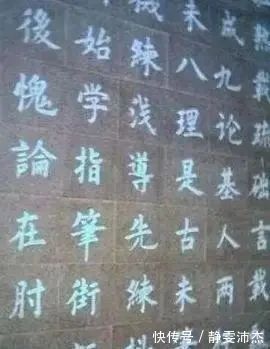 載疏础言載
成九论基人两
未八理是古未
練浅導先練
始学指筆街
後愧論在肘
快传号／静雯沛杰